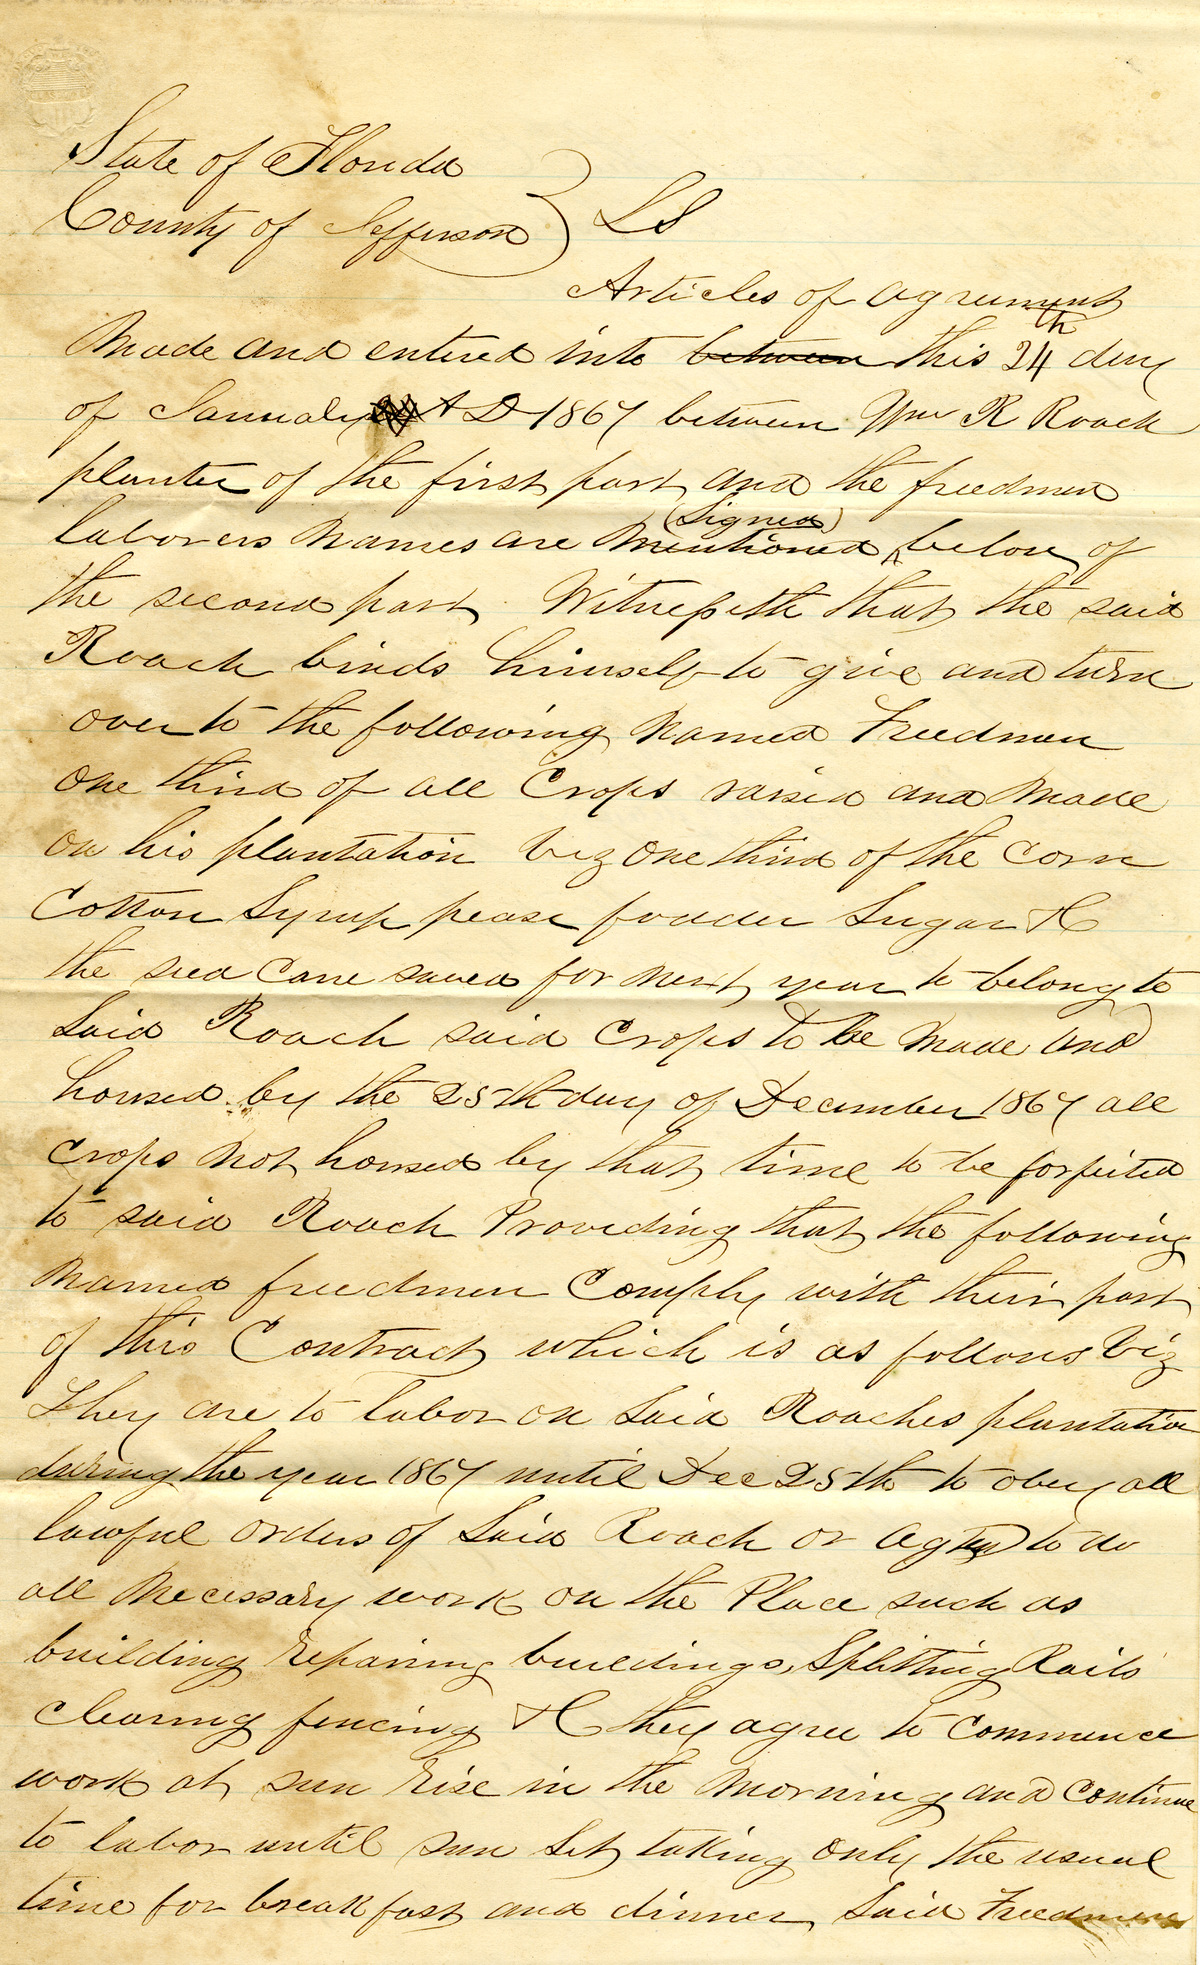 State of Florida
County of Jefferson } LS
Articles of agreement
Made and entered into between this 24th day
of January A D 1867 between Wm R Roach
planter of the first part and the freedmen
laborers names are mentioned (Signed) below of
the second part Witnesseth that the said
Roach binds himself to give and turn
over to the following named Freedmen
one third of all Crops raised and made
on his plantation viz one third of the corn
Cotton Syrup pease fodder Sugar &C
the seed Cane saved for next year to belong to
Said Roach said Crops to be made and
housed by the 25th day of December 1867 all
crops not housed by that time to be forfeited
to said Roach Providing that the following
named freedmen Comply with their part
of this Contract which is as follows Viz
They are to labor on Said Roaches plantation
during the year 1867 until Dec 25th to obey all
lawful orders of Said Roach or Agt to do
all necessary work on the Place such as
building repairing buildings, Splitting Rails
clearing fencing &C they agree to commence
work at sun rise in the morning and continue
to labor until sun set taking only the usual
time for breakfast and dinner Said Freedmen